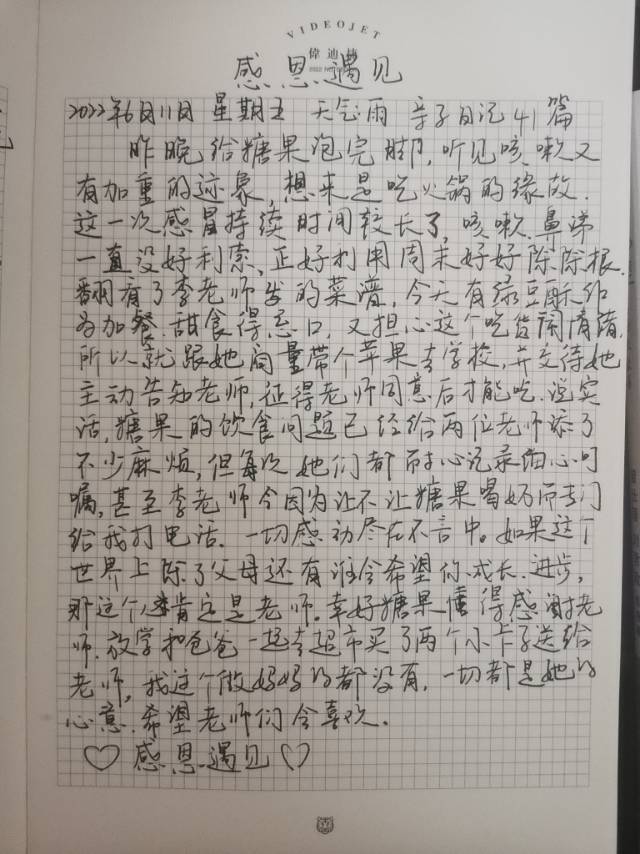 VIDEOJET
偉迪
感恩遇见
2022年6月11日 星期五 天气雨 亲子日记41篇
昨晚给糖果泡完脚,听见咳嗽又
有加重的迹象,想来是吃火锅的缘故.
这一次感冒持续时间较长了,咳嗽.鼻涕
一直没好利索、正好利用周末好好除除根.
翻看了李老师发的菜谱,今天有绿豆酥给
为加餐.甜食得忌口,又担心这个吃货闹情绪.
所以就跟她商量带个苹果去学校,并交待她
主动告知老师,征得老师同意后才能吃.说实
话,糖果的饮食问题已经给两位老师添了
不少麻烦,但每次她们都耐心记录细心叮
嘱,甚至李老师会因为让不让糖果喝奶而专门
给我打电话.一切感动尽在不言中。如果这个
世界上除了父母还有谁会希望你成长.进步,
那这个人肯定是老师.幸好糖果懂得感谢老
师.放学和爸爸一起去超市买了两个小卡子送给
老师,我这个做妈妈的都没有,一切都是她的
心意.希望老师们会喜欢.
♡感恩遇见♡